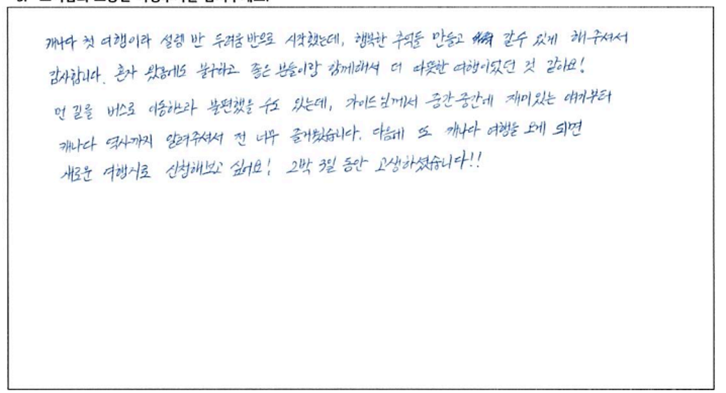 캐나다 첫 여행이라 설렘 반 두려움 반으로 시작했는데, 행복한 추억들 만들고 갈 수 있게 해주셔서
감사합니다. 혼자 왔음에도 불구하고 좋은 분들이랑 함께해서 더 따뜻한 여행이었던 것 같아요!
먼 길을 버스로 이동하느라 불편했을 수도 있는데, 가이드님께서 중간중간에 재미있는 얘기부터
캐나다 역사까지 알려주셔서 전 너무 즐거웠습니다. 다음에 또 캐나다 여행을 오게 되면
새로운 여행지로 신청해보고 싶어요! 2박 3일 동안 고생하셨습니다!!